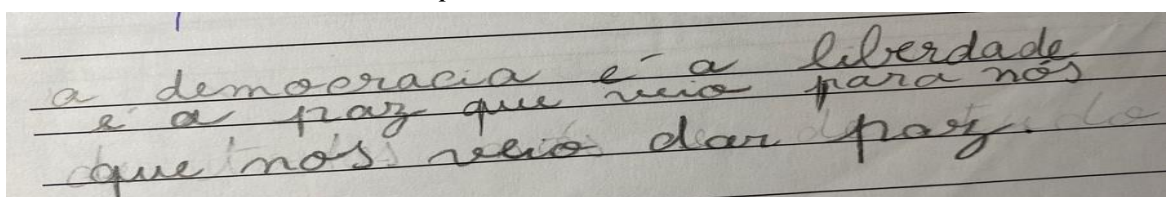 a democracia é a liberdade
e a paz que veio para nós
que nos veio dar paz.